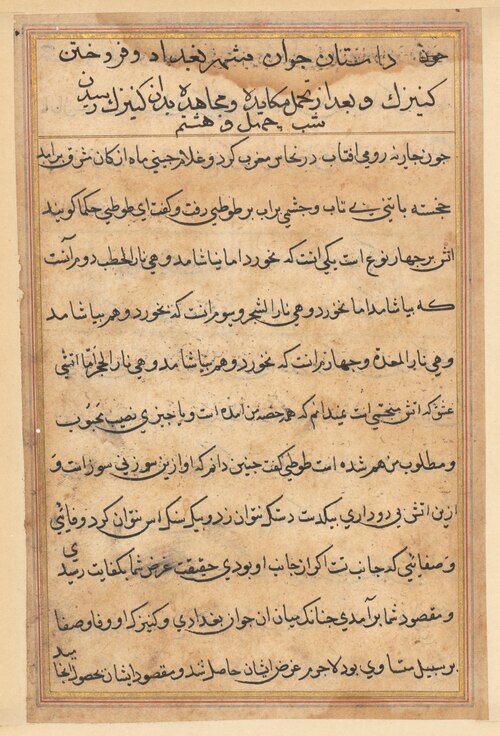 داستان جوان بشهر بغداد و فروختن
کنیزك و بعد از تحمل مکایده و مجاهده بدان کنیزك رسیدن
شب چهل و هشتم
چون جاریه رومی افتاب در نخاس مغرب کرد و غلام چینی ماه از کان شرق برامد
خجسته با تنی بی تاب و چشمی پراب بر طوطی رفت و کفت ای طوطی حکما کویند
اتش بر چهار نوع است یکی انست که بخورد اما نیاشامد و هی نار الحطب دوم آنست
که بیاشامد اما نخورد و هی نار الشجر و سوم انست که بخورد و هم بیاشامد
و هی نار المعدة و چهارم انست که نخورد و هم نیاشامد و هی نار الحجر اما اتشی
عشق که اتش سختی است نمیدانم که همه حصه من امده است و یا چیزی نصیب محبوب
و مطلوب من هم شده است طوطی کفت چنین دانم که او ازین سوز نی سوز است و
ازین اتش بی رودازی بیکدست دستک نتوان زد و بیک سنك اس نتوان کرد و فائی
و صفائی که جانب تست اکر از جانب او بودی حقیقت غرض شما بکفایت رسیدی
و مقصود شما برآمدی چنانك میان ان جوان بغدادی و کنیزك او وفا و صفا
بر سبیل تساوی بود لاجرم غرض ایشان حاصل شد و مقصود ایشان بحصول انجامید